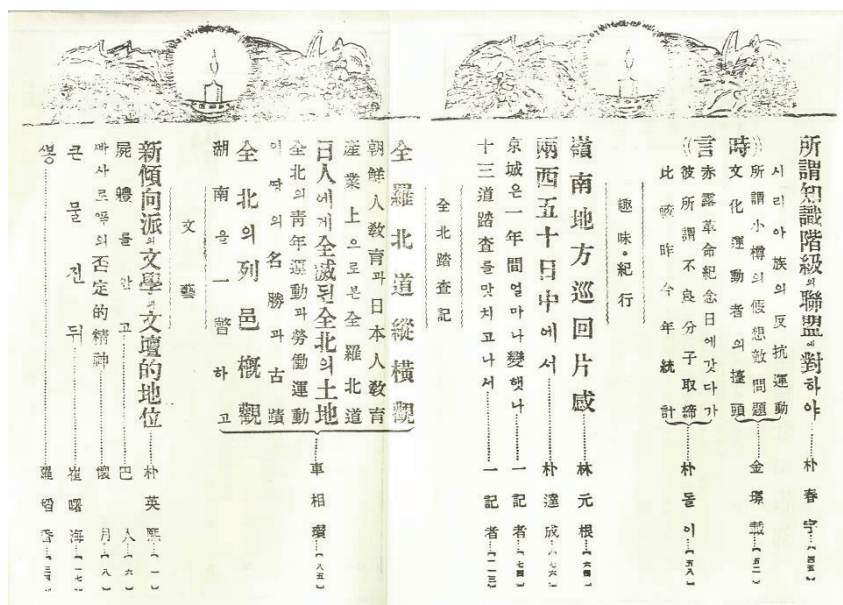 所謂知識階級의聯盟에對하야……朴春宇…【四五】
시리아族의反抗運動
所謂小樽의假想敵問題
文化運動者의擡頭
金璟載…【五二】
時言
赤露革命紀念日에갓다가
彼所謂不良分子取締
比較昨今年統計
朴돌이…【五八】
趣味·紀行
嶺南地方巡回片感……林元根…【六四】
兩西五十日中에서……朴達成…【七六】
京城은一年間얼마나變햇나……一記者…【七四】
十三道踏査를맛치고나서……一記者…【一一三】
全北踏査記
全羅北道縱橫觀
朝鮮人敎育과日本人敎育
産業上으로본全羅北道
日人에게全滅된全北의土地
全北의靑年運動과勞働運動
이땅의名勝과古蹟
全北의列邑槪觀
湖南을一瞥하고
車相瓚…【八五】
文藝
新傾向派의文學과文壇的地位……朴英熙…【一】
屍體를안고……巴人…【六】
빠사로프의否定的精神……懷月…【八】
큰물진뒤……崔曙海…【一七】
뽕……羅稻香…